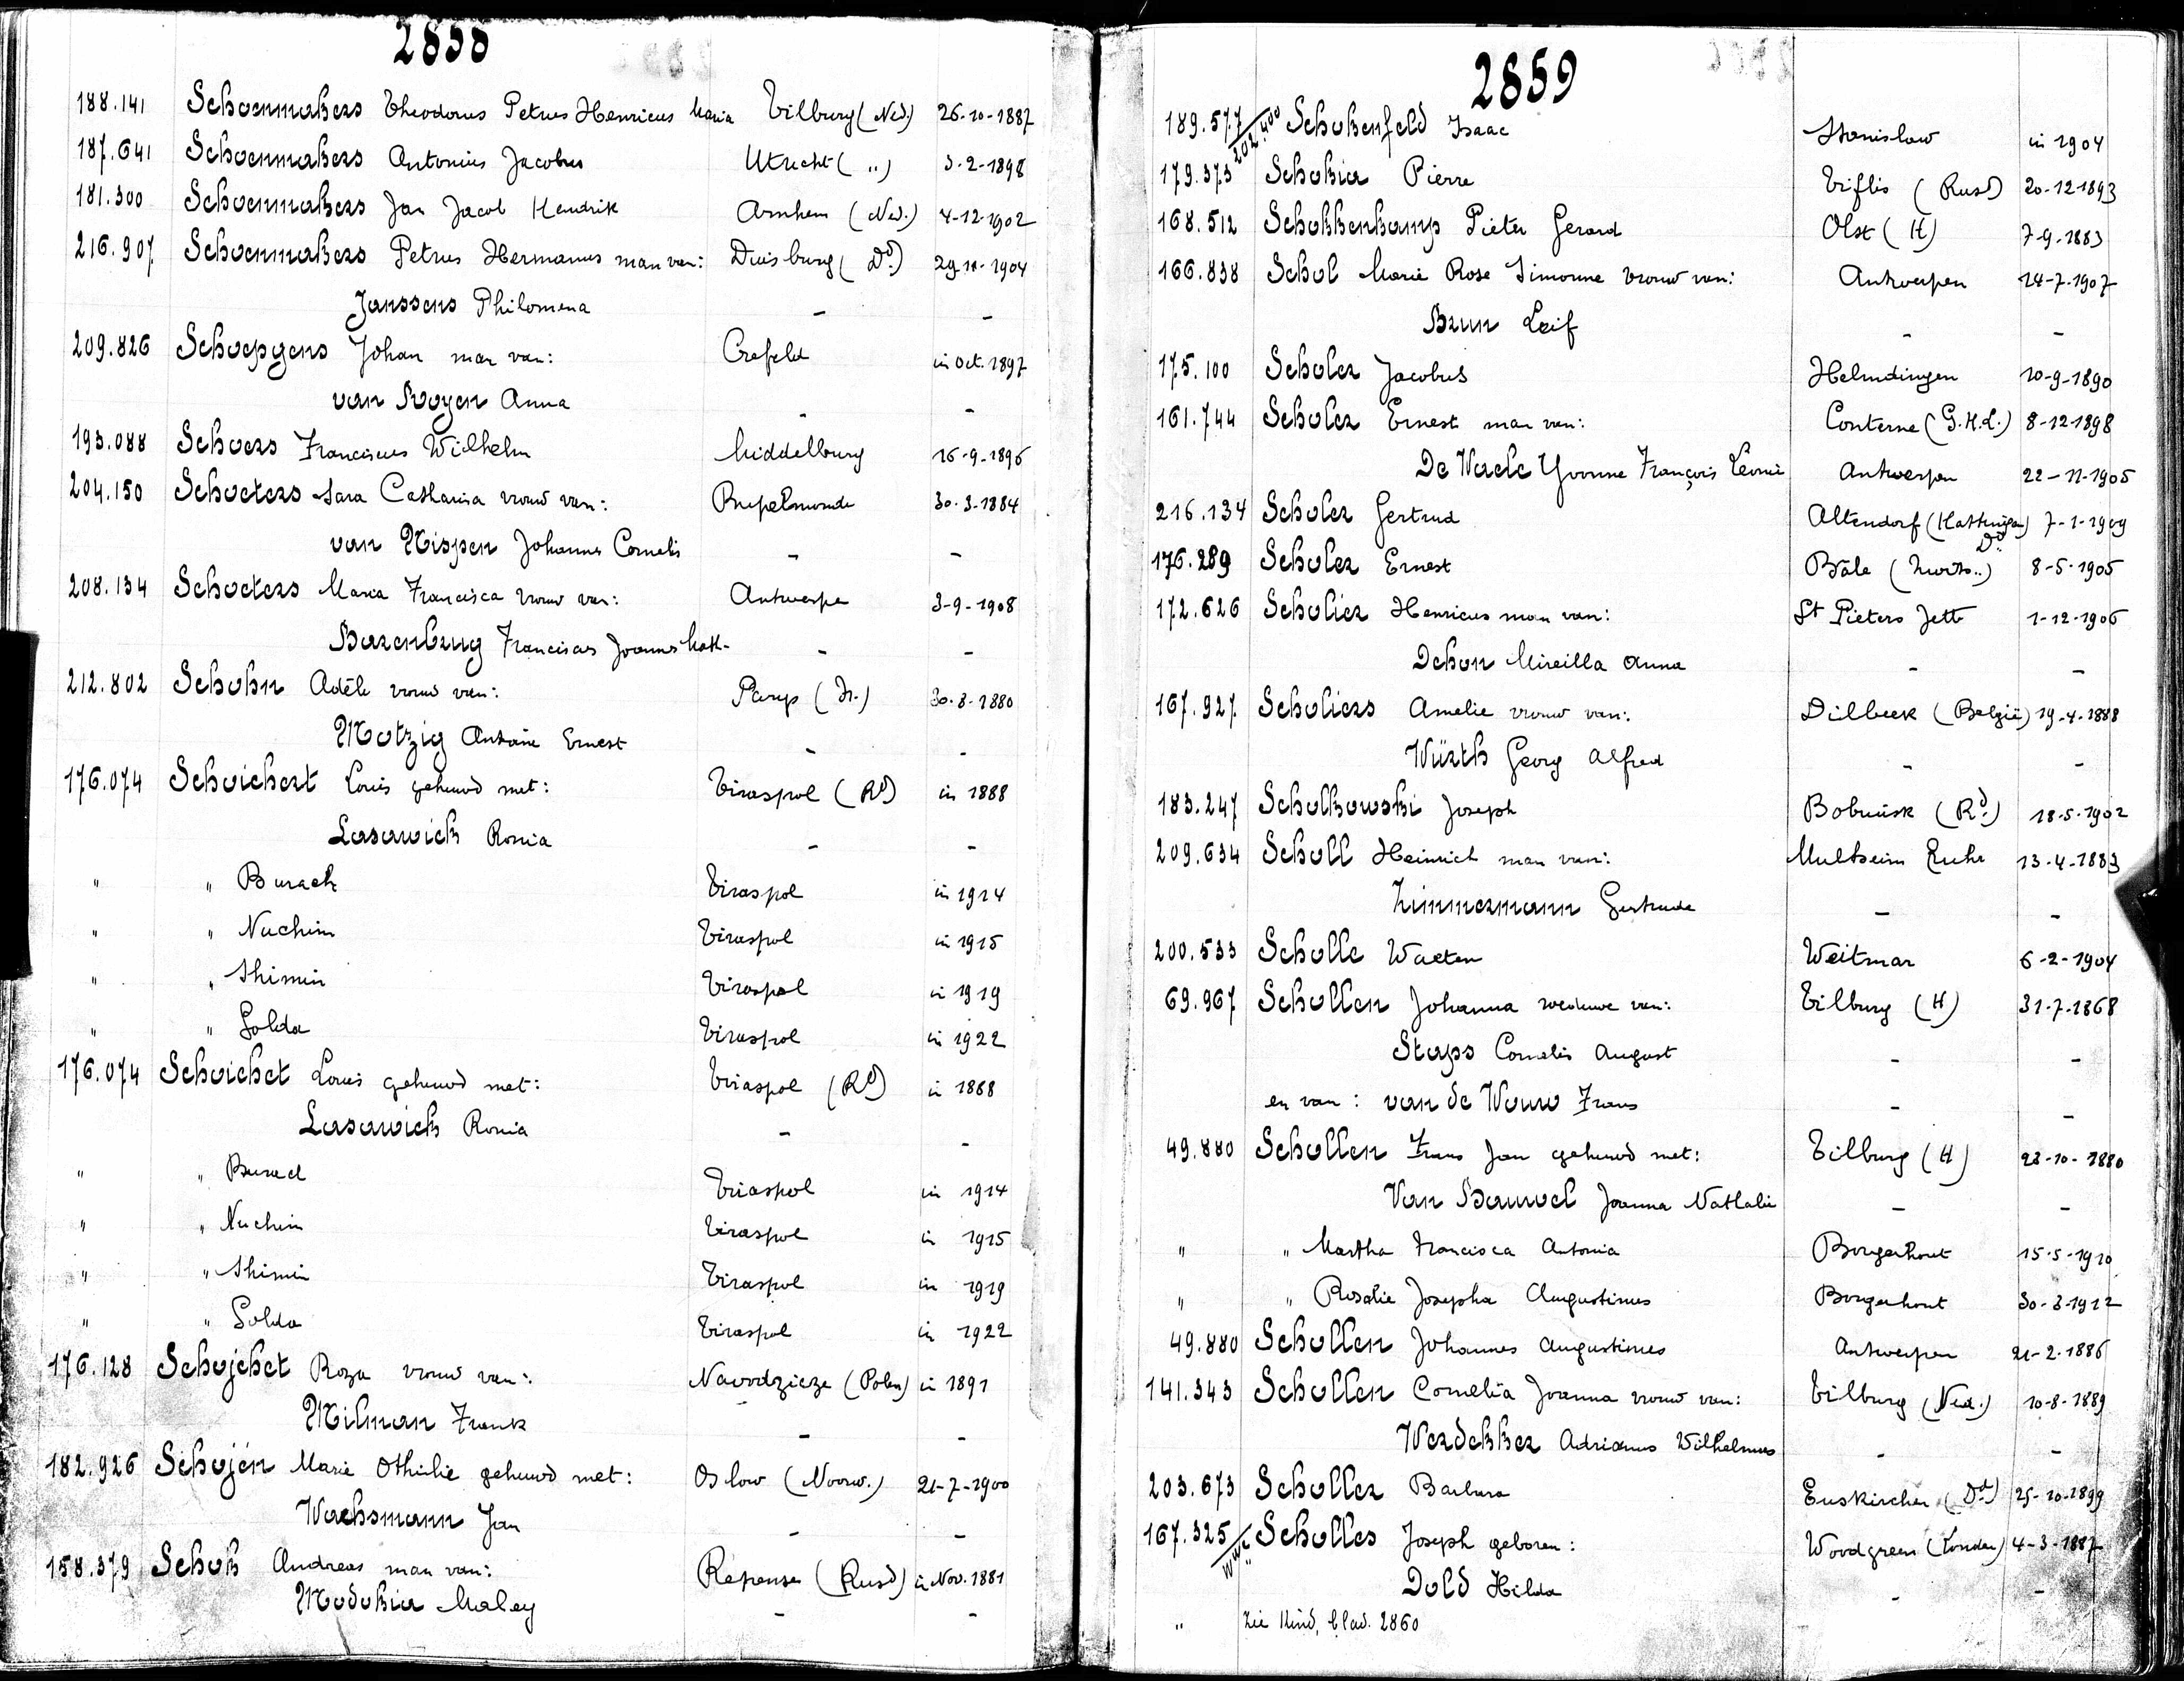 2858
188.141 Schoenmakers Theodorus Petrus Henricus Maria Tilburg (Ned.) 26-10-1887
187.641 Schoenmakers Antonius Jacobus Utrecht ( „ ) 3-2-1898
181.300 Schoenmakers Jan Jacob Hendrik Arnhem (Ned.) 4-12-1902
216.907 Schoenmakers Petrus Hermanus man van: Duisburg (Dd.) 29-11-1904
Janssens Philomena - -
209.826 Schoepgens Johan man van: Crefeld in Oct. 1897
van Booyen Anna - -
193.088 Schoers Franciscus Wilhelm Middelburg 16-9-1896
204.150 Schoeters Sara Catharina vrouw van: Rupelmonde 30-3-1884
van Nispen Johannes Cornelis - -
208.134 Schoeters Maria Francisca vrouw van: Antwerpen 3-9-1908
Barenbrug Franciscus Joannes - -
212.802 Schohn Adèle vrouw van: Parijs (Fr.) 30-8-1880
Motzig Antoine Ernest - -
176.074 Schoichert Louis gehuwd met: Tiraspol (Rd) in 1888
Lasawick Ronia - -
" " Burach Tiraspol in 1914
" " Nuchim Tiraspol in 1915
" " Shimin Tiraspol in 1919
" " Golda Tiraspol in 1922
176.074 Schoichet Louis gehuwd met: Triaspol (Rd) in 1868
Lasawick Ronia - -
" " Burach Triaspol in 1914
" " Nuchim Tiraspol in 1915
" " Shimin Tiraspol in 1919
" " Golda Tiraspol in 1922
176.128 Schojchet Roza vrouw van: Navodzicze (Polen) in 1891
Milman Frank - -
182.926 Schojén Marie Othilie gehuwd met: Oslow (Noorw.) 21-7-1900
Wachsmann Jan - -
158.379 Schok Andreas man van: Repense (Rusd) in Nov. 1881
Modokia Maley - -
2859
189.577 / 202.400 Schokenfeld Isaac Stanislow in 1904
179.373 Schokia Pierre Tiflis (Rusd) 20-12-1893
168.512 Schokkenkamp Pieter Gerard Olst (H) 7-9-1883
166.838 Schol Marie Rose Simonne vrouw van: Antwerpen 24-7-1907
Brun Leif - -
175.100 Scholer Jacobus Helmdingen 10-9-1890
161.744 Scholer Ernest man van: Conterne (G.H.L.) 8-12-1898
De Waele Yvonne François Leonie Antwerpen 22-11-1905
216.134 Scholer Gertrud Altendorf (Hattingen) Dd. 7-1-1909
176.289 Scholer Ernest Bâle (Zwits..) 8-5-1905
172.626 Scholier Henricus man van: St Pieters Jette 1-12-1906
Dehon Mireilla Anna - -
167.927 Scholiers Amelie vrouw van: Dilbeek (België) 19-4-1888
Würth Georg Alfred - -
183.247 Scholkowski Joseph Bobruisk (Rd.) 18-5-1902
209.634 Scholl Heinrich man van: Mulheim Ruhr 13-4-1883
Zimmermann Gertrude - -
200.533 Scholle Walter Weitmar 6-2-1904
69.967 Schollen Johanna weduwe van: Tilburg (H) 31-7-1868
Staps Cornelis August - -
en van: van de Wouw Frans - -
49.880 Schollen Frans Jan gehuwd met: Tilburg (H) 23-10-1880
Van Bauwel Joanna Nathalie - -
" " Martha Francisca Antonia Borgerhout 15-5-1910
" " Rosalie Josepha Augustinus Borgerhout 30-3-1912
49.880 Schollen Johannes Augustinus Antwerpen 21-2-1886
141.343 Schollen Cornelia Joanna vrouw van: Tilburg (Ned.) 10-8-1889
Werdekker Adrianus Wilhelmus - -
203.673 Scholler Barbara Euskirchen (Dd) 25-10-1899
167.325 Scholles Joseph geboren: Woodgreen (Londen) 4-3-1887
Dold Hilda - -
" Zie Kind, blad. 2860